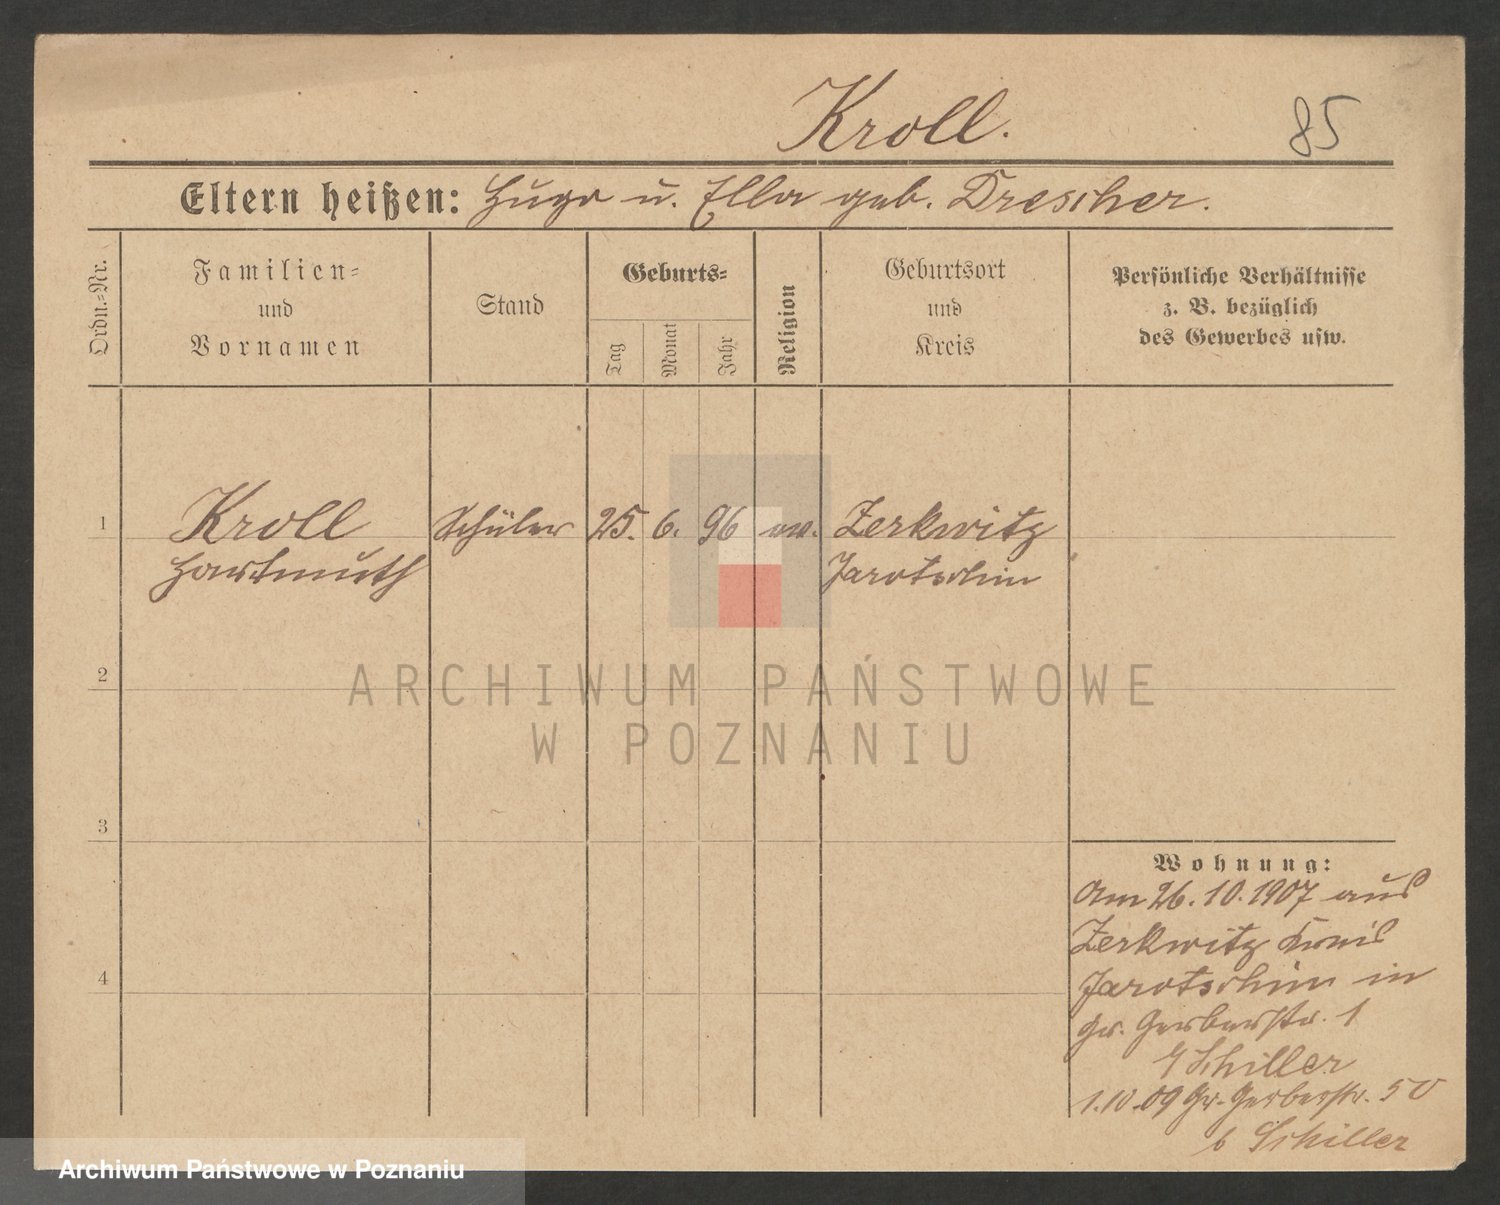 Kroll.
85
Eltern heißen: Hugo u. Ella geb. Drescher.
Ordn.-Nr.
Familien-
und
Vornamen
Stand
Geburts-
Tag
Monat
Jahr
Religion
Geburtsort
und
Kreis
Persönliche Verhältnisse
z. B. bezüglich
des Gewerbes usw.
1 Kroll Schüler 25. 6. 96 ev. Zerkwitz
Hartmuth Jarotschin
2
ARCHIWUM PAŃSTWOWE
W POZNANIU
3
Wohnung:
Am 26.10.1907 aus
Zerkwitz Kreis
4
Jarotschin in
Gr. Gerberstr. 1
Schiller
1.10.09 Gr. Gerberstr. 50
b Schiller
Archiwum Państwowe w Poznaniu